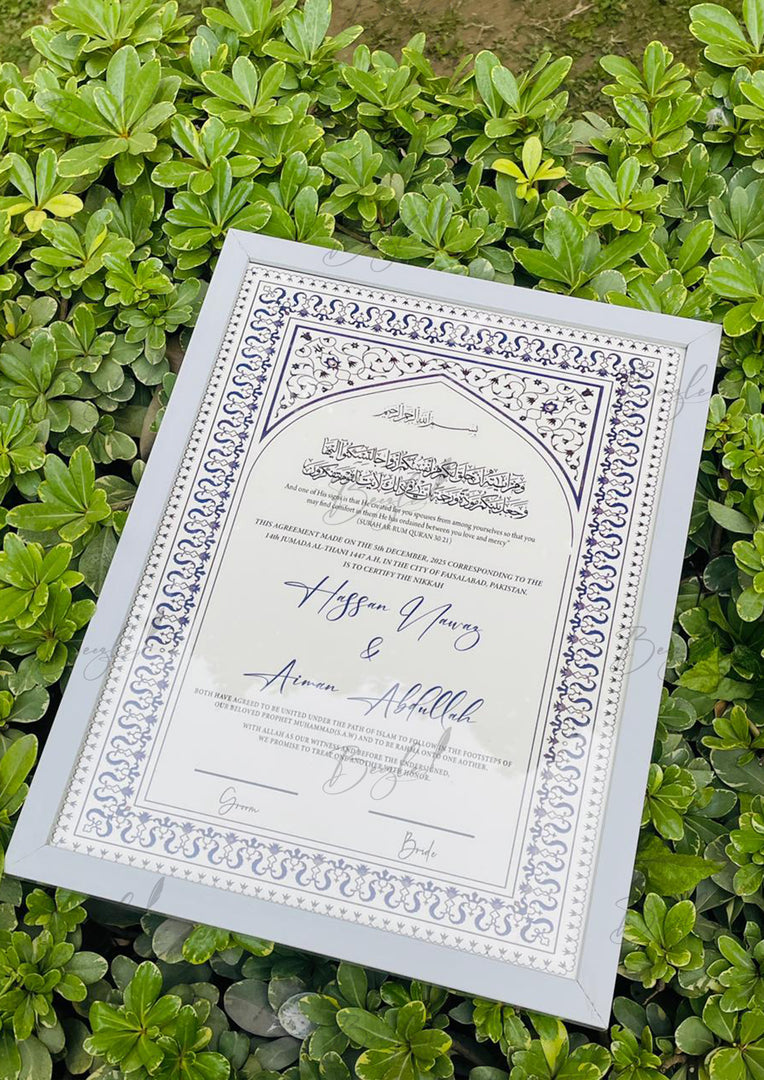 بسم الله الرحمن الرحيم
ومن آياته أن خلق لكم من أنفسكم أزواجا لتسكنوا إليها
وجعل بينكم مودة ورحمة إن في ذلك لآيات لقوم يتفكرون
And one of His signs is that He created for you spouses from among yourselves so that you
may find comfort in them He has ordained between you love and mercy"
(SURAH AR RUM QURAN 30:21)
THIS AGREEMENT MADE ON THE 5th DECEMBER, 2025 CORRESPONDING TO THE
14th JUMADA AL-THANI 1447 A.H, IN THE CITY OF FAISALABAD, PAKISTAN.
IS TO CERTIFY THE NIKKAH
Hassan Nawaz
&
Aiman Abdullah
BOTH HAVE AGREED TO BE UNITED UNDER THE PATH OF ISLAM TO FOLLOW THE FOOTSTEPS OF
OUR BELOVED PROPHET MUHAMMAD(S.A.W) AND TO BE RAHMA ONTO ONE AOTHER.
WITH ALLAH AS OUR WITNESS AND BEFORE THE UNDERSIGNED,
WE PROMISE TO TREAT ONE ANOTHER WITH HONOR.
Groom
Bride